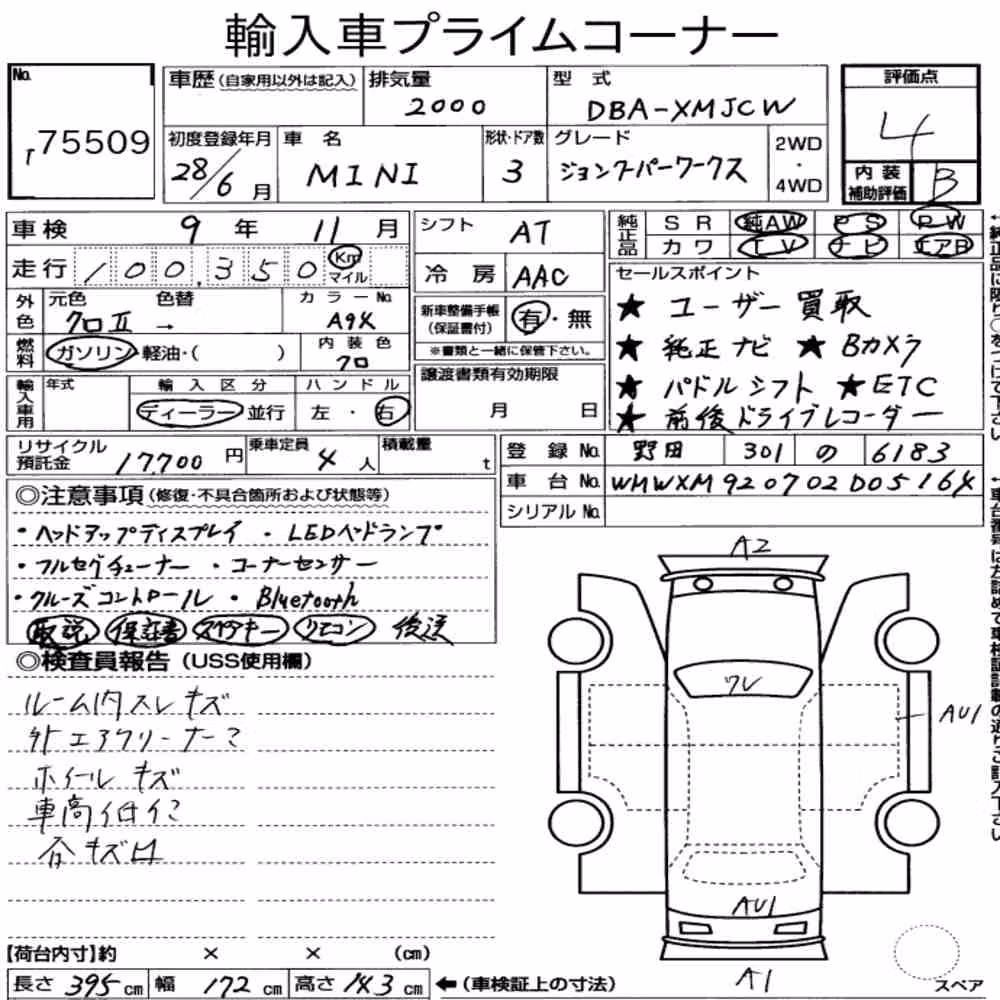 輸入車プライムコーナー
No.
75509
車歴(自家用以外は記入)
排気量
2000
型式
DBA-XMJCW
評価点
4
初度登録年月
28/6月
車名
MINI
形状・ドア数
3
グレード
ジョンクーパーワークス
2WD
・
4WD
内装
補助評価
B
車検 9年 11月
シフト AT
純正品
SR 純AW PS PW
カワ TV ナビ エアB
走行 100,350 Km マイル
冷房 AAC
外色
元色 クロⅡ →
色替
カラーNo. A94
新車整備手帳
(保証書付)
有・無
※書類と一緒に保管下さい。
燃料
ガソリン・軽油・( )
内装色
クロ
セールスポイント
★ ユーザー買取
★ 純正ナビ ★ Bカメラ
★ パドルシフト ★ETC
★ 前後ドライブレコーダー
譲渡書類有効期限
月 日
輸入車用
年式
輸入区分
ディーラー・並行
ハンドル
左・右
リサイクル
預託金
17,700円
乗車定員
4人
積載量
t
登録No. 野田 301 の 6183
車台No. WMWXM920702D05164
シリアルNo.
◎注意事項(修復・不具合箇所および状態等)
・ヘッドアップディスプレイ ・LEDヘッドランプ
・フルセグチューナー ・コーナーセンサー
・クルーズコントロール ・Bluetooth
取説 保証書 スペアキー リモコン 後送
◎検査員報告(USS使用欄)
ルーム内スレキズ
外エアクリーナー?
ホイールキズ
車高
キズ
A2
ワレ
AU1
AU1
A1
スペア
【荷台内寸】約 × × (cm)
長さ 395cm 幅 172cm 高さ 143cm
←(車検証上の寸法)